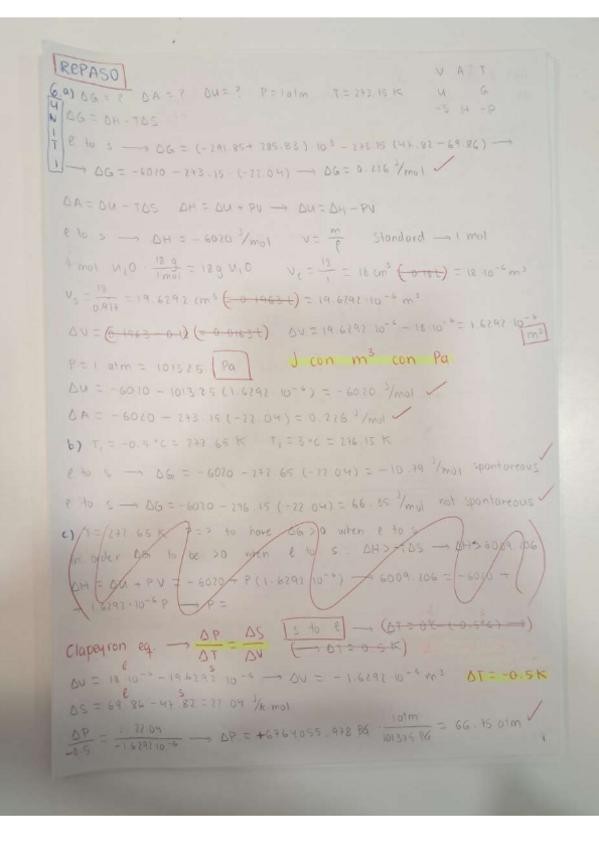 REPASO
V A T
U G
-S H -P
6 a) ΔG = ? ΔA = ? ΔU = ? P = 1 atm T = 273.15 K
UNIT 1
ΔG = ΔH - TΔS
l to s → ΔG = (-291.85 + 285.83) · 10³ - 273.15 (47.82 - 69.86) →
→ ΔG = -6020 - 273.15 · (-22.04) → ΔG = 0.226 J/mol ✓
ΔA = ΔU - TΔS ΔH = ΔU + PV → ΔU = ΔH - PV
l to s → ΔH = -6020 J/mol V = m/ρ Standard → 1 mol
1 mol H₂O · 18 g / 1 mol = 18 g H₂O V_l = 18/1 = 18 cm³ = 18 · 10⁻⁶ m³
V_s = 18/0.917 = 19.6292 cm³ = 19.6292 · 10⁻⁶ m³
ΔV = ΔV = 19.6292 · 10⁻⁶ - 18 · 10⁻⁶ = 1.6292 · 10⁻⁶ m³
P = 1 atm = 101325 Pa J con m³ con Pa
ΔU = -6020 - 101325 (1.6292 · 10⁻⁶) = -6020 J/mol ✓
ΔA = -6020 - 273.15 (-22.04) = 0.226 J/mol ✓
b) T₁ = -0.5 °C = 272.65 K T₂ = 3 °C = 276.15 K
l to s → ΔG = -6020 - 272.65 (-22.04) = -10.79 J/mol spontaneous ✓
l to s → ΔG = -6020 - 276.15 (-22.04) = 66.35 J/mol not spontaneous ✓
c) T = 272.65 K P = ? to have ΔG > 0 when l to s
In order ΔG to be > 0 when l to s : ΔH > TΔS → ΔH > 6009.206
ΔH = ΔU + PV = -6020 + P (1.6292 · 10⁻⁶) → 6009.206 = -6020 +
+ 1.6292 · 10⁻⁶ P → P =
Clapeyron eq. → ΔP/ΔT = ΔS/ΔV s to l →
(→ ΔT = 0.5 K)
ΔV = 18 · 10⁻⁶ - 19.6292 · 10⁻⁶ → ΔV = -1.6292 · 10⁻⁶ m³ ΔT = -0.5 K
ΔS = 69.86 - 47.82 = 22.04 J/K·mol
ΔP / -0.5 = 22.04 / -1.6292·10⁻⁶ → ΔP = +6764055.978 Pa · 1 atm / 101325 Pa = 66.75 atm ✓